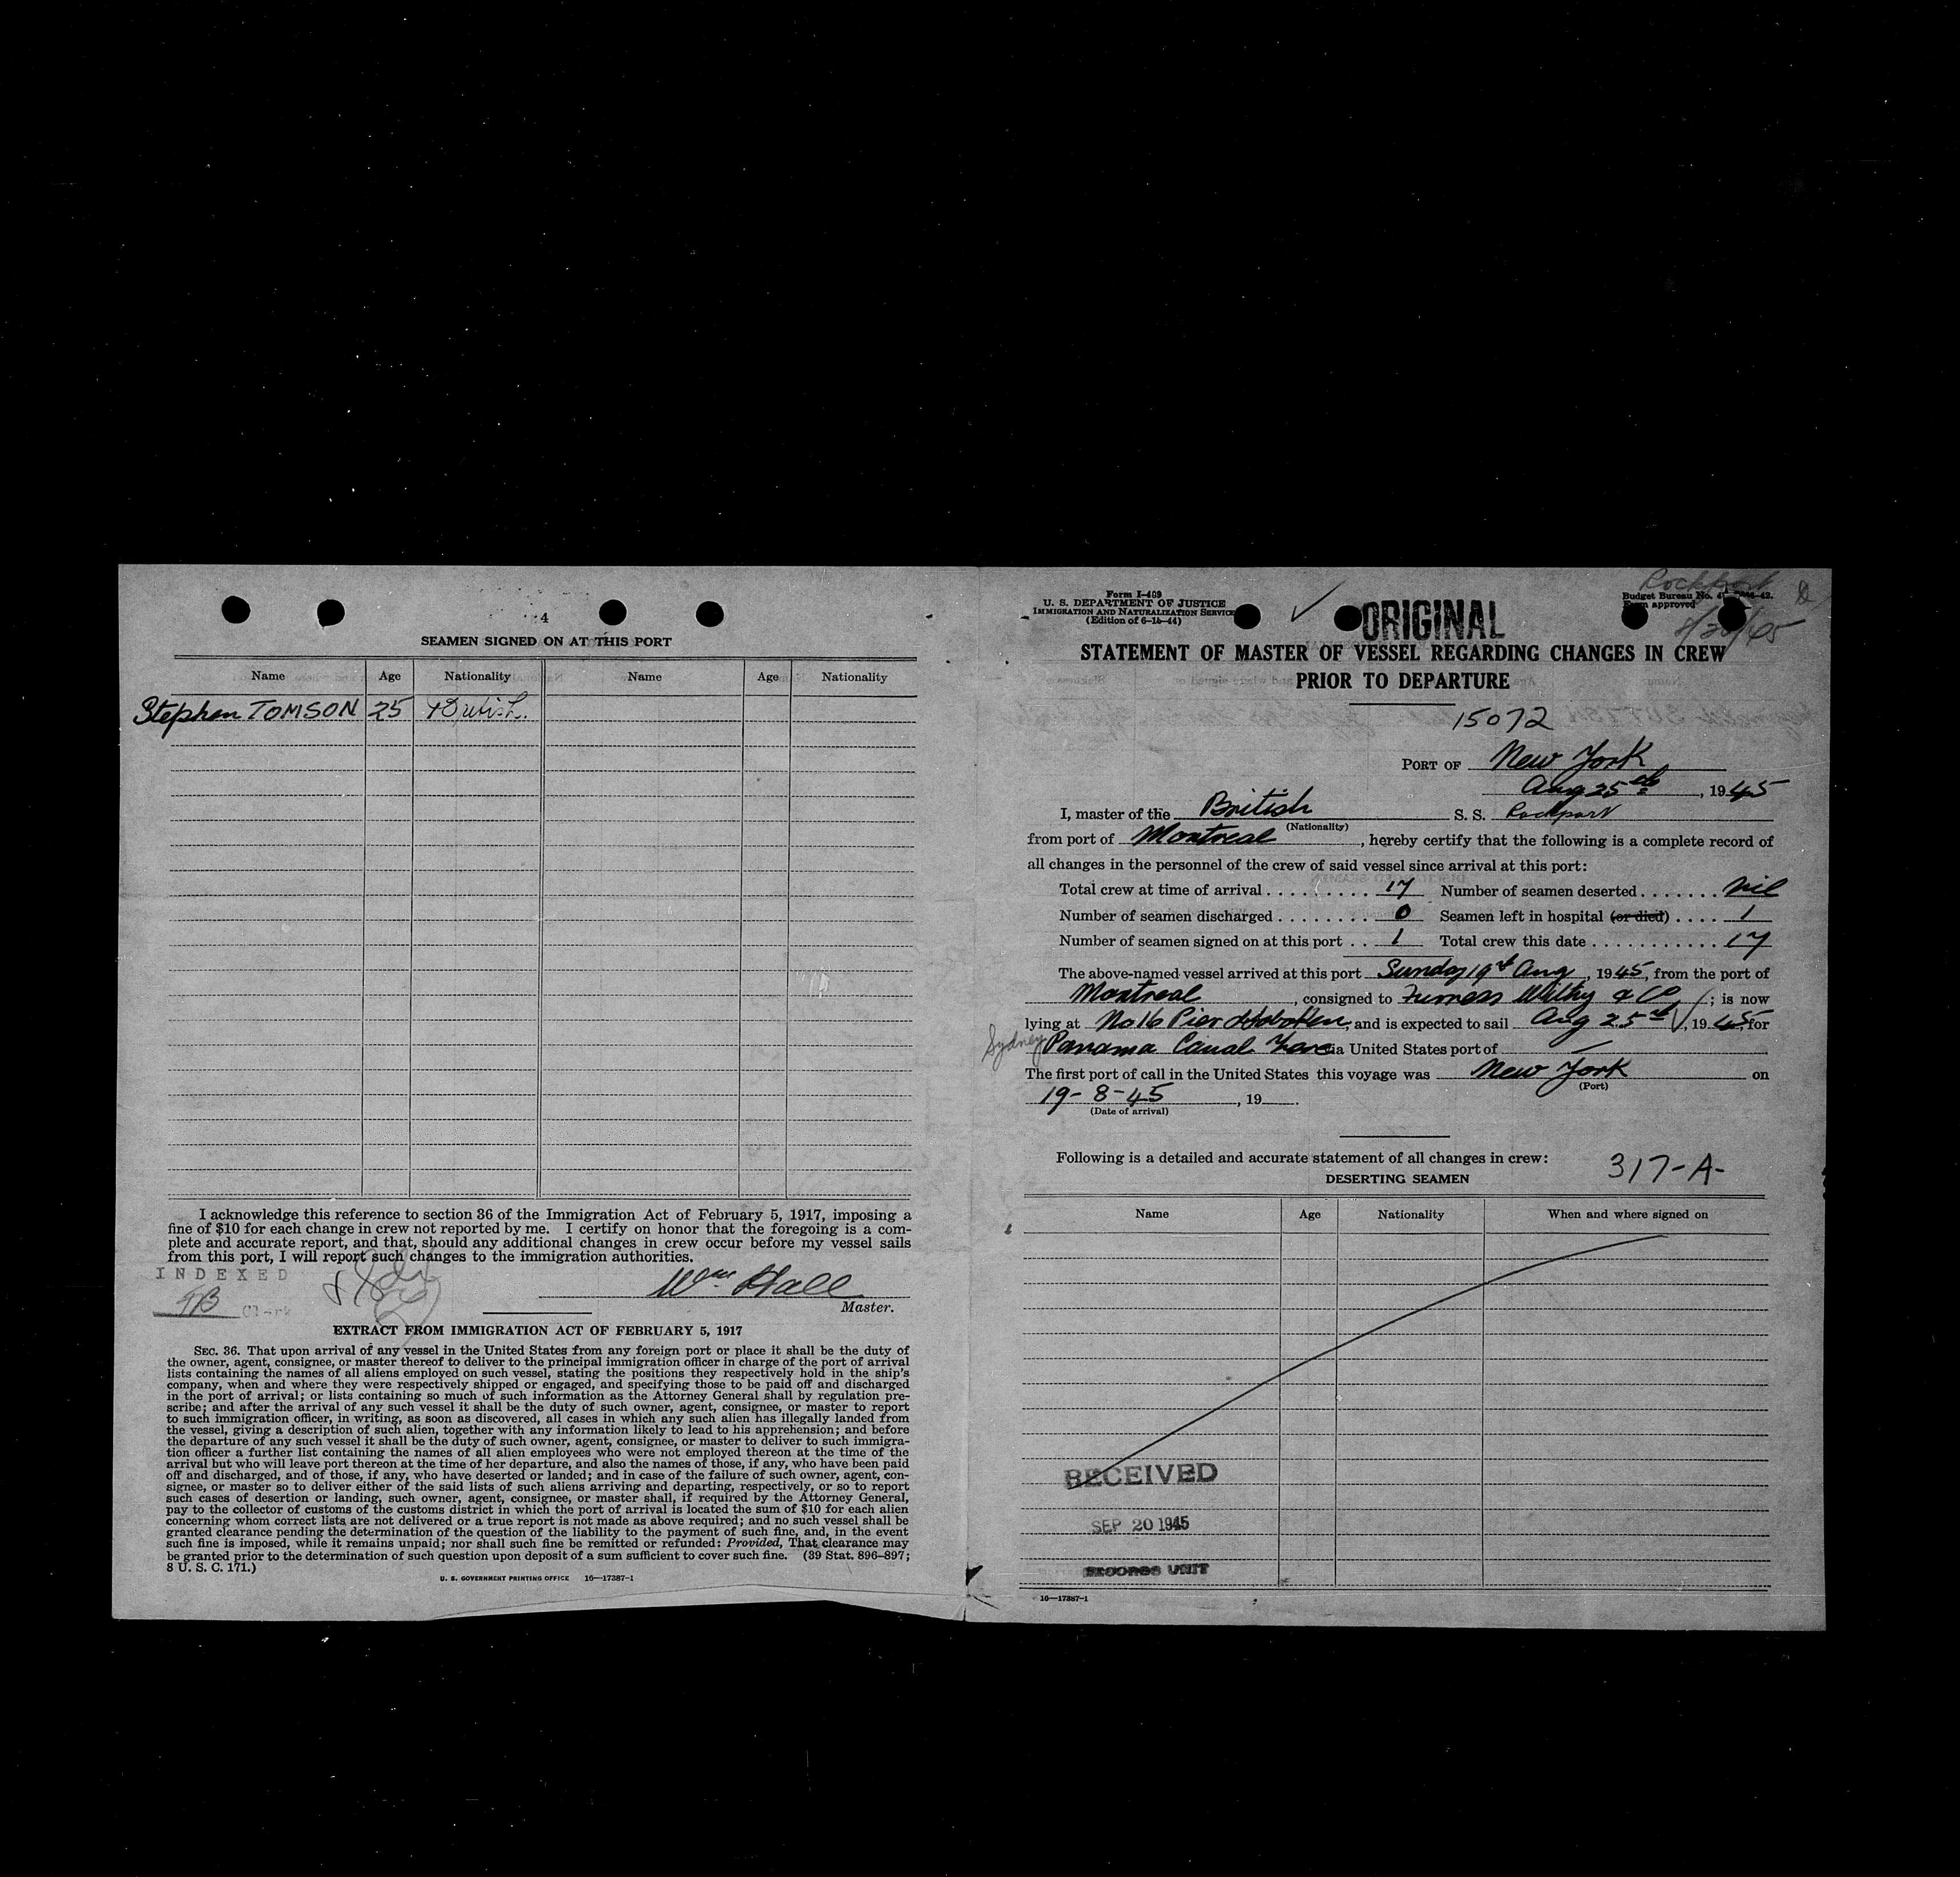 4
SEAMEN SIGNED ON AT THIS PORT
Name Age Nationality Name Age Nationality
Stephen TOMSON 25 British.
I acknowledge this reference to section 36 of the Immigration Act of February 5, 1917, imposing a
fine of $10 for each change in crew not reported by me. I certify on honor that the foregoing is a com-
plete and accurate report, and that, should any additional changes in crew occur before my vessel sails
from this port, I will report such changes to the immigration authorities.
INDEXED
Clerk
Wm Hall
Master.
EXTRACT FROM IMMIGRATION ACT OF FEBRUARY 5, 1917
SEC. 36. That upon arrival of any vessel in the United States from any foreign port or place it shall be the duty of
the owner, agent, consignee, or master thereof to deliver to the principal immigration officer in charge of the port of arrival
lists containing the names of all aliens employed on such vessel, stating the positions they respectively hold in the ship's
company, when and where they were respectively shipped or engaged, and specifying those to be paid off and discharged
in the port of arrival; or lists containing so much of such information as the Attorney General shall by regulation pre-
scribe; and after the arrival of any such vessel it shall be the duty of such owner, agent, consignee, or master to report
to such immigration officer, in writing, as soon as discovered, all cases in which any such alien has illegally landed from
the vessel, giving a description of such alien, together with any information likely to lead to his apprehension; and before
the departure of any such vessel it shall be the duty of such owner, agent, consignee, or master to deliver to such immigra-
tion officer a further list containing the names of all alien employees who were not employed thereon at the time of the
arrival but who will leave port thereon at the time of her departure, and also the names of those, if any, who have been paid
off and discharged, and of those, if any, who have deserted or landed; and in case of the failure of such owner, agent, con-
signee, or master so to deliver either of the said lists of such aliens arriving and departing, respectively, or so to report
such cases of desertion or landing, such owner, agent, consignee, or master shall, if required by the Attorney General,
pay to the collector of customs of the customs district in which the port of arrival is located the sum of $10 for each alien
concerning whom correct lists are not delivered or a true report is not made as above required; and no such vessel shall be
granted clearance pending the determination of the question of the liability to the payment of such fine, and, in the event
such fine is imposed, while it remains unpaid; nor shall such fine be remitted or refunded: Provided, That clearance may
be granted prior to the determination of such question upon deposit of a sum sufficient to cover such fine. (39 Stat. 896–897;
8 U. S. C. 171.)
U. S. GOVERNMENT PRINTING OFFICE 16—17387-1
Form I-489
U. S. DEPARTMENT OF JUSTICE
IMMIGRATION AND NATURALIZATION SERVICE
(Edition of 6-15-44)
ORIGINAL
Rockport
Budget Bureau No.
Form approved
STATEMENT OF MASTER OF VESSEL REGARDING CHANGES IN CREW
PRIOR TO DEPARTURE
15072
PORT OF New York
Aug 25th, 1945
I, master of the British S. S. Rockport
(Nationality)
from port of Montreal, hereby certify that the following is a complete record of
all changes in the personnel of the crew of said vessel since arrival at this port:
Total crew at time of arrival 17 Number of seamen deserted nil
Number of seamen discharged 0 Seamen left in hospital (or died) 1
Number of seamen signed on at this port 1 Total crew this date 17
The above-named vessel arrived at this port Sunday 19th Aug, 1945, from the port of
Montreal, consigned to Furness Withy & Co; is now
lying at No 16 Pier Hoboken, and is expected to sail Aug 25th, 1945 for
Sydney Panama Canal Zone via United States port of —
The first port of call in the United States this voyage was New York on
(Port)
19-8-45, 19
(Date of arrival)
Following is a detailed and accurate statement of all changes in crew:
317-A-
DESERTING SEAMEN
Name Age Nationality When and where signed on
RECEIVED
SEP 20 1945
RECORDS UNIT
16—17387-1